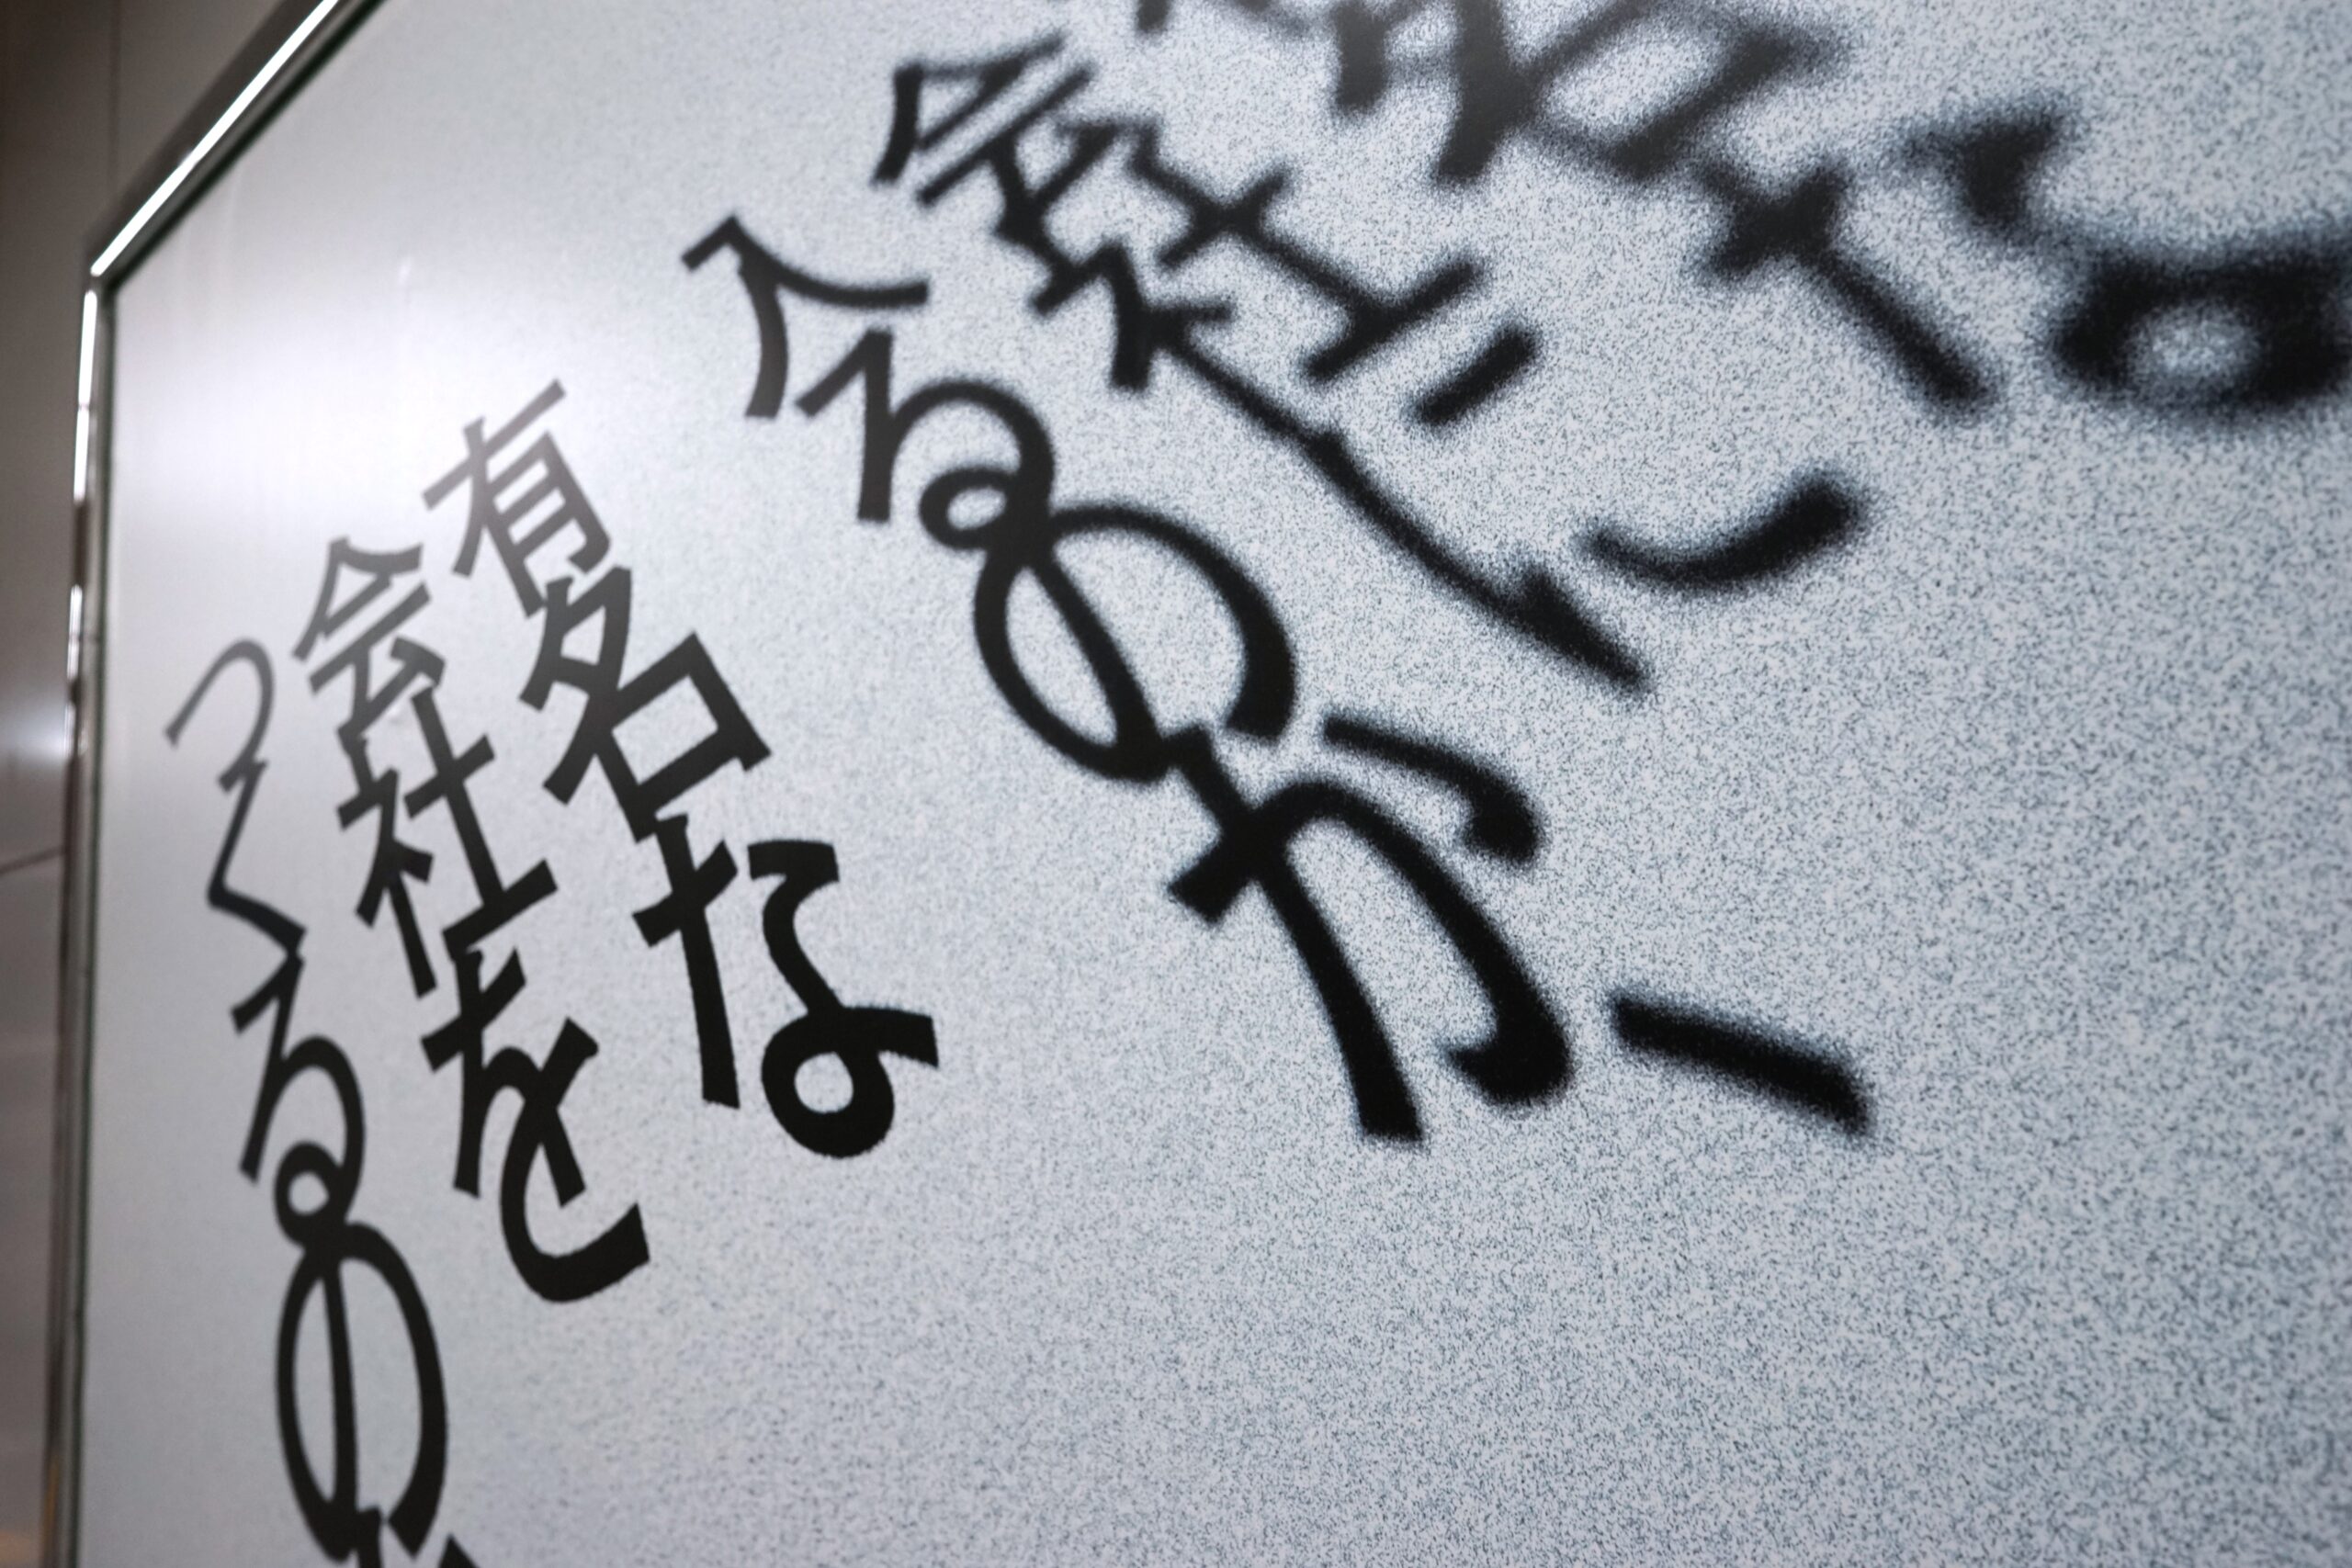 名な
会社に
入るのか、
有名な
会社を
つくるの